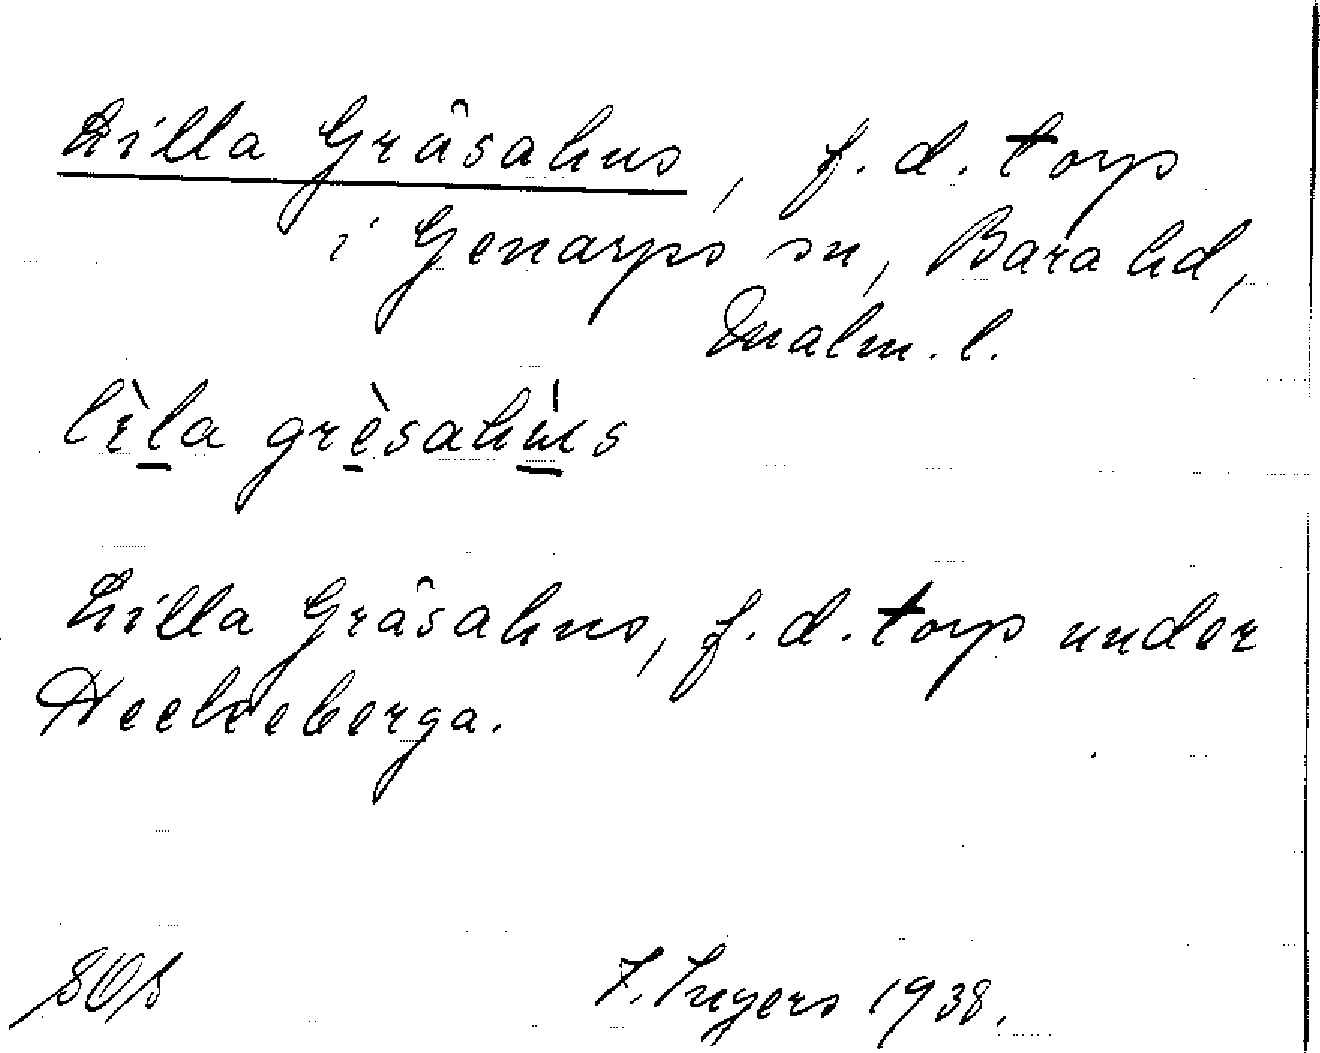 Lilla Gräsahus, f.d. torp
i Genarps sn, Bara hd,
Malm. l.
lìla grèsahùs
Lilla Gräsahus, f.d. torp under
Heckeberga.
F. Ingers 1938.